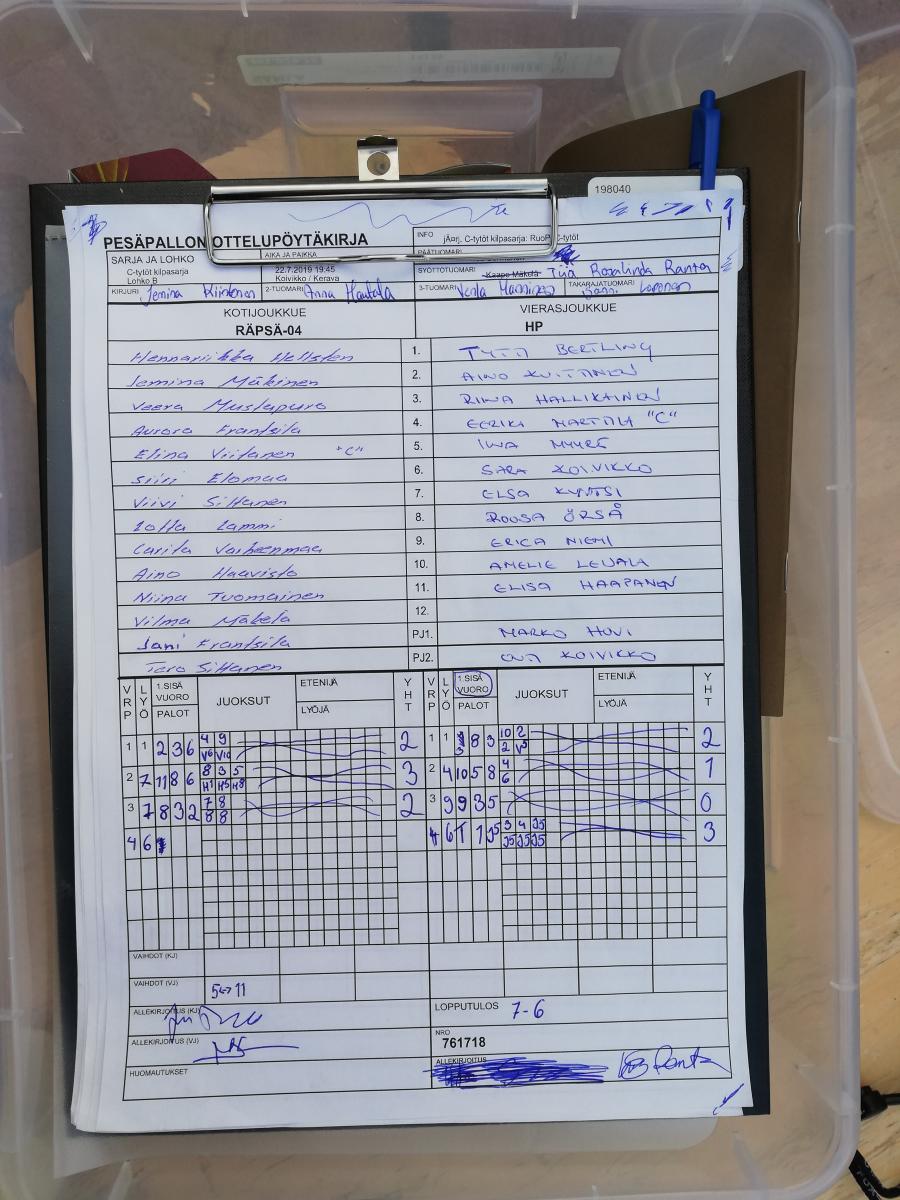 198040
PESÄPALLON OTTELUPÖYTÄKIRJA
INFO
jÄ¤rj. C-tytöt kilpasarja: RuoP C-tytöt
SARJA JA LOHKO
C-tytöt kilpasarja
Lohko B
AIKA JA PAIKKA
22.7.2019 19:45
Koivikko / Kerava
PÄÄTUOMARI
SYÖTTÖTUOMARI Kaapo Mäkelä Tiia Rosalinda Ranta
KIRJURI Jemina
2-TUOMARI Anna Hautala
3-TUOMARI Venla Manninen
TAKARAJATUOMARI Sanni Loponen
KOTIJOUKKUE VIERASJOUKKUE
RÄPSÄ-04 HP
Hennariikka Hellsten 1. TYTTI BERTLING
Jemina Mäkinen 2. AINO KUITTINEN
Veera Mustapuro 3. RINA HALLIKAINEN
Aurora Frantsila 4. EERIKA MARTTILA "C"
Elina Viitanen "C" 5. MYYRÄ
Siiri Elomaa 6. SARA KOIVIKKO
Viivi Siltanen 7. ELSA KYNTSI
Lotta Lammi 8. ROOSA ÖRSÅ
Carita Varheenmaa 9. ERICA NIEMI
Aino Haavisto 10. AMELIE LEVALA
Niina Tuomainen 11. ELISA HAAPANEN
Vilma Mäkelä 12.
Jani Frantsila PJ1. MARKO HOVI
Tero Siltanen PJ2. OUTI KOIVIKKO
VRP LYÖ 1.SISÄ VUORO PALOT JUOKSUT ETENIJÄ LYÖJÄ YHT
VRP LYÖ 1.SISÄ VUORO PALOT JUOKSUT ETENIJÄ LYÖJÄ YHT
1 1 2 3 6 4 9 2
V6 V10
1 1 3 8 3 10 2 2
2 V5
2 7 11 8 6 8 3 5 3
H1 H5 H8
2 4 10 5 8 4 1
6
3 7 8 3 2 7 8 2
8 8
3 9 9 3 5 0
4 6
4 6 T 1 J5 3 4 J5 3
J5 J5 J5
VAIHDOT (KJ)
VAIHDOT (VJ) 5↔11
ALLEKIRJOITUS (KJ)
LOPPUTULOS 7-6
ALLEKIRJOITUS (VJ)
NRO
761718
HUOMAUTUKSET
ALLEKIRJOITUS Ranta